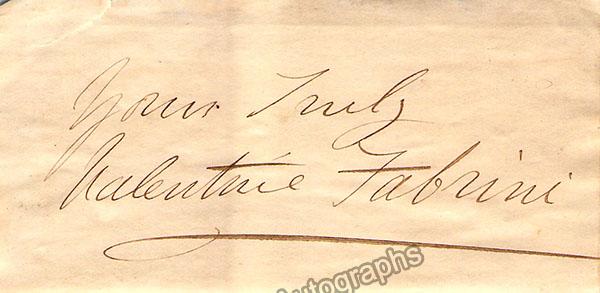 Yours Truly
Valentine Fabrini
Autographs